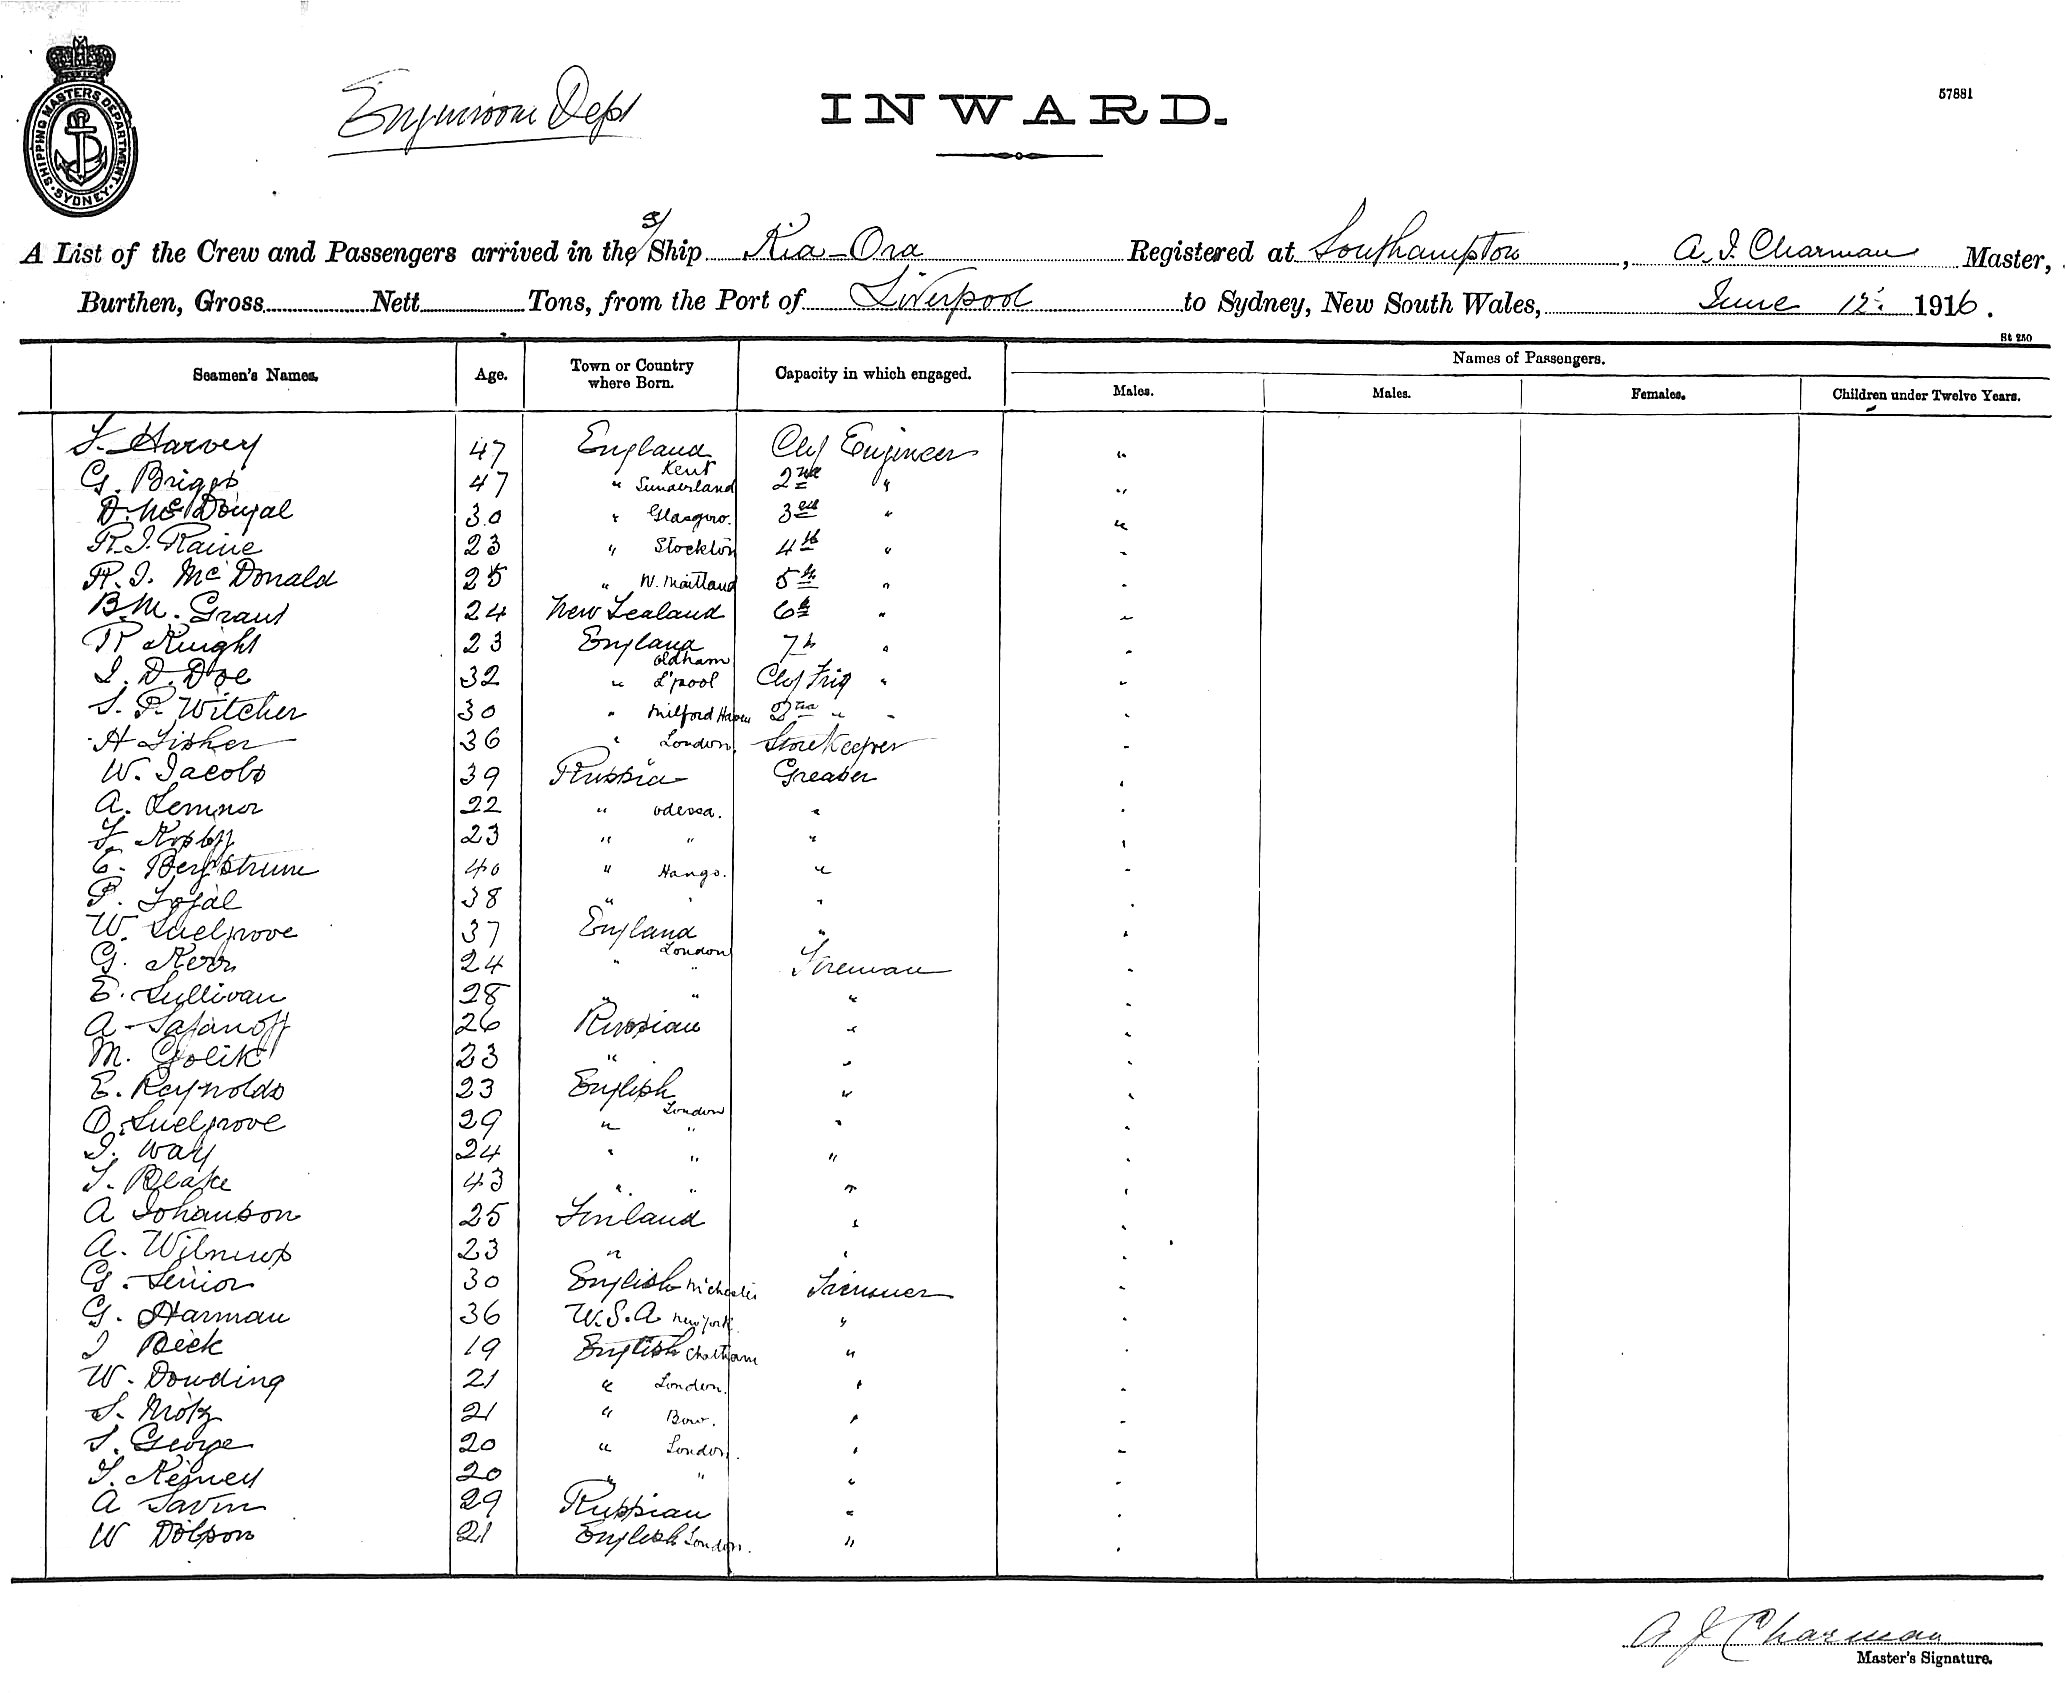 SHIPPING MASTERS DEPARTMENT. SYDNEY
Engineroom Dept
INWARD.
57881
A List of the Crew and Passengers arrived in the S/ Ship Kia-Ora Registered at Southampton, A. J. Charman Master,
Burthen, Gross Nett Tons, from the Port of Liverpool to Sydney, New South Wales, June 12. 1916.
St 250
Seamen's Names. Age. Town or Country where Born. Capacity in which engaged. Names of Passengers.
Males. Males. Females. Children under Twelve Years.
Harvey 47 England Kent Chf Engineer "
G. Briggs 47 " Sunderland 2nd " "
D. McDougal 30 " Glasgow. 3rd " "
R. J. Raine 23 " Stockton 4th " "
R. J. McDonald 25 " W. Maitland 5th " "
B. M. Grant 24 New Zealand 6th " "
R Knight 23 England Oldham 7th " "
J. D. Doe 32 " L'pool Chf Frig " "
S. P. Witcher 30 " Milford Haven 2nd " " "
H Fisher 36 " London. Storekeeper "
W. Jacobs 39 Russia Greaser "
A. 22 " Odessa. " "
23 " " " "
C. Bergstrum 40 " Hango. " "
P. 38 " " " "
W. Snelgrove 37 England London " "
G. Kerr 24 " " Fireman "
E. Sullivan 28 " " " "
A. 26 Russian " "
M. Golik 23 " " "
E. Reynolds 23 English London " "
O. Snelgrove 29 " " " "
J. Way 24 " " " "
Blake 43 " " " "
A Johanson 25 Finland " "
A. 23 " " "
G. Senior 30 English M'chester Trimmer "
G. Harman 36 U.S.A New York " "
J 19 English Chatham " "
W. Dowding 21 " London. " "
S. 21 " Bow. " "
S. George 20 " London. " "
20 " " " "
A Savin 29 Russian " "
W Dobson 21 English London. " "
A J Charman
Master's Signature.